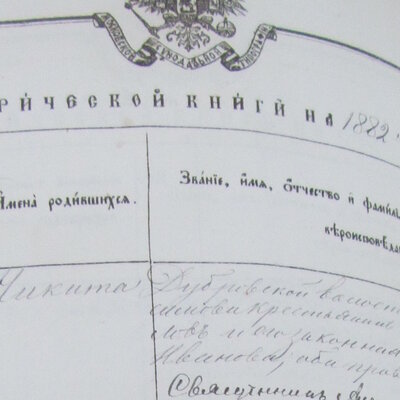 СѴНОДАЛЬНОЙ
РИ́ЧЕСКОЙ КНИ́ГИ НА 1882
Имена̀ роди́вшихсѧ.
Зва́нїе, и҆́мѧ, ѻ҆́тчество и҆ фами́лї
вѣроисповѣда
Никита
Дубровской волост
крестьянин
и его законная
Иванова, оба прав
Священник